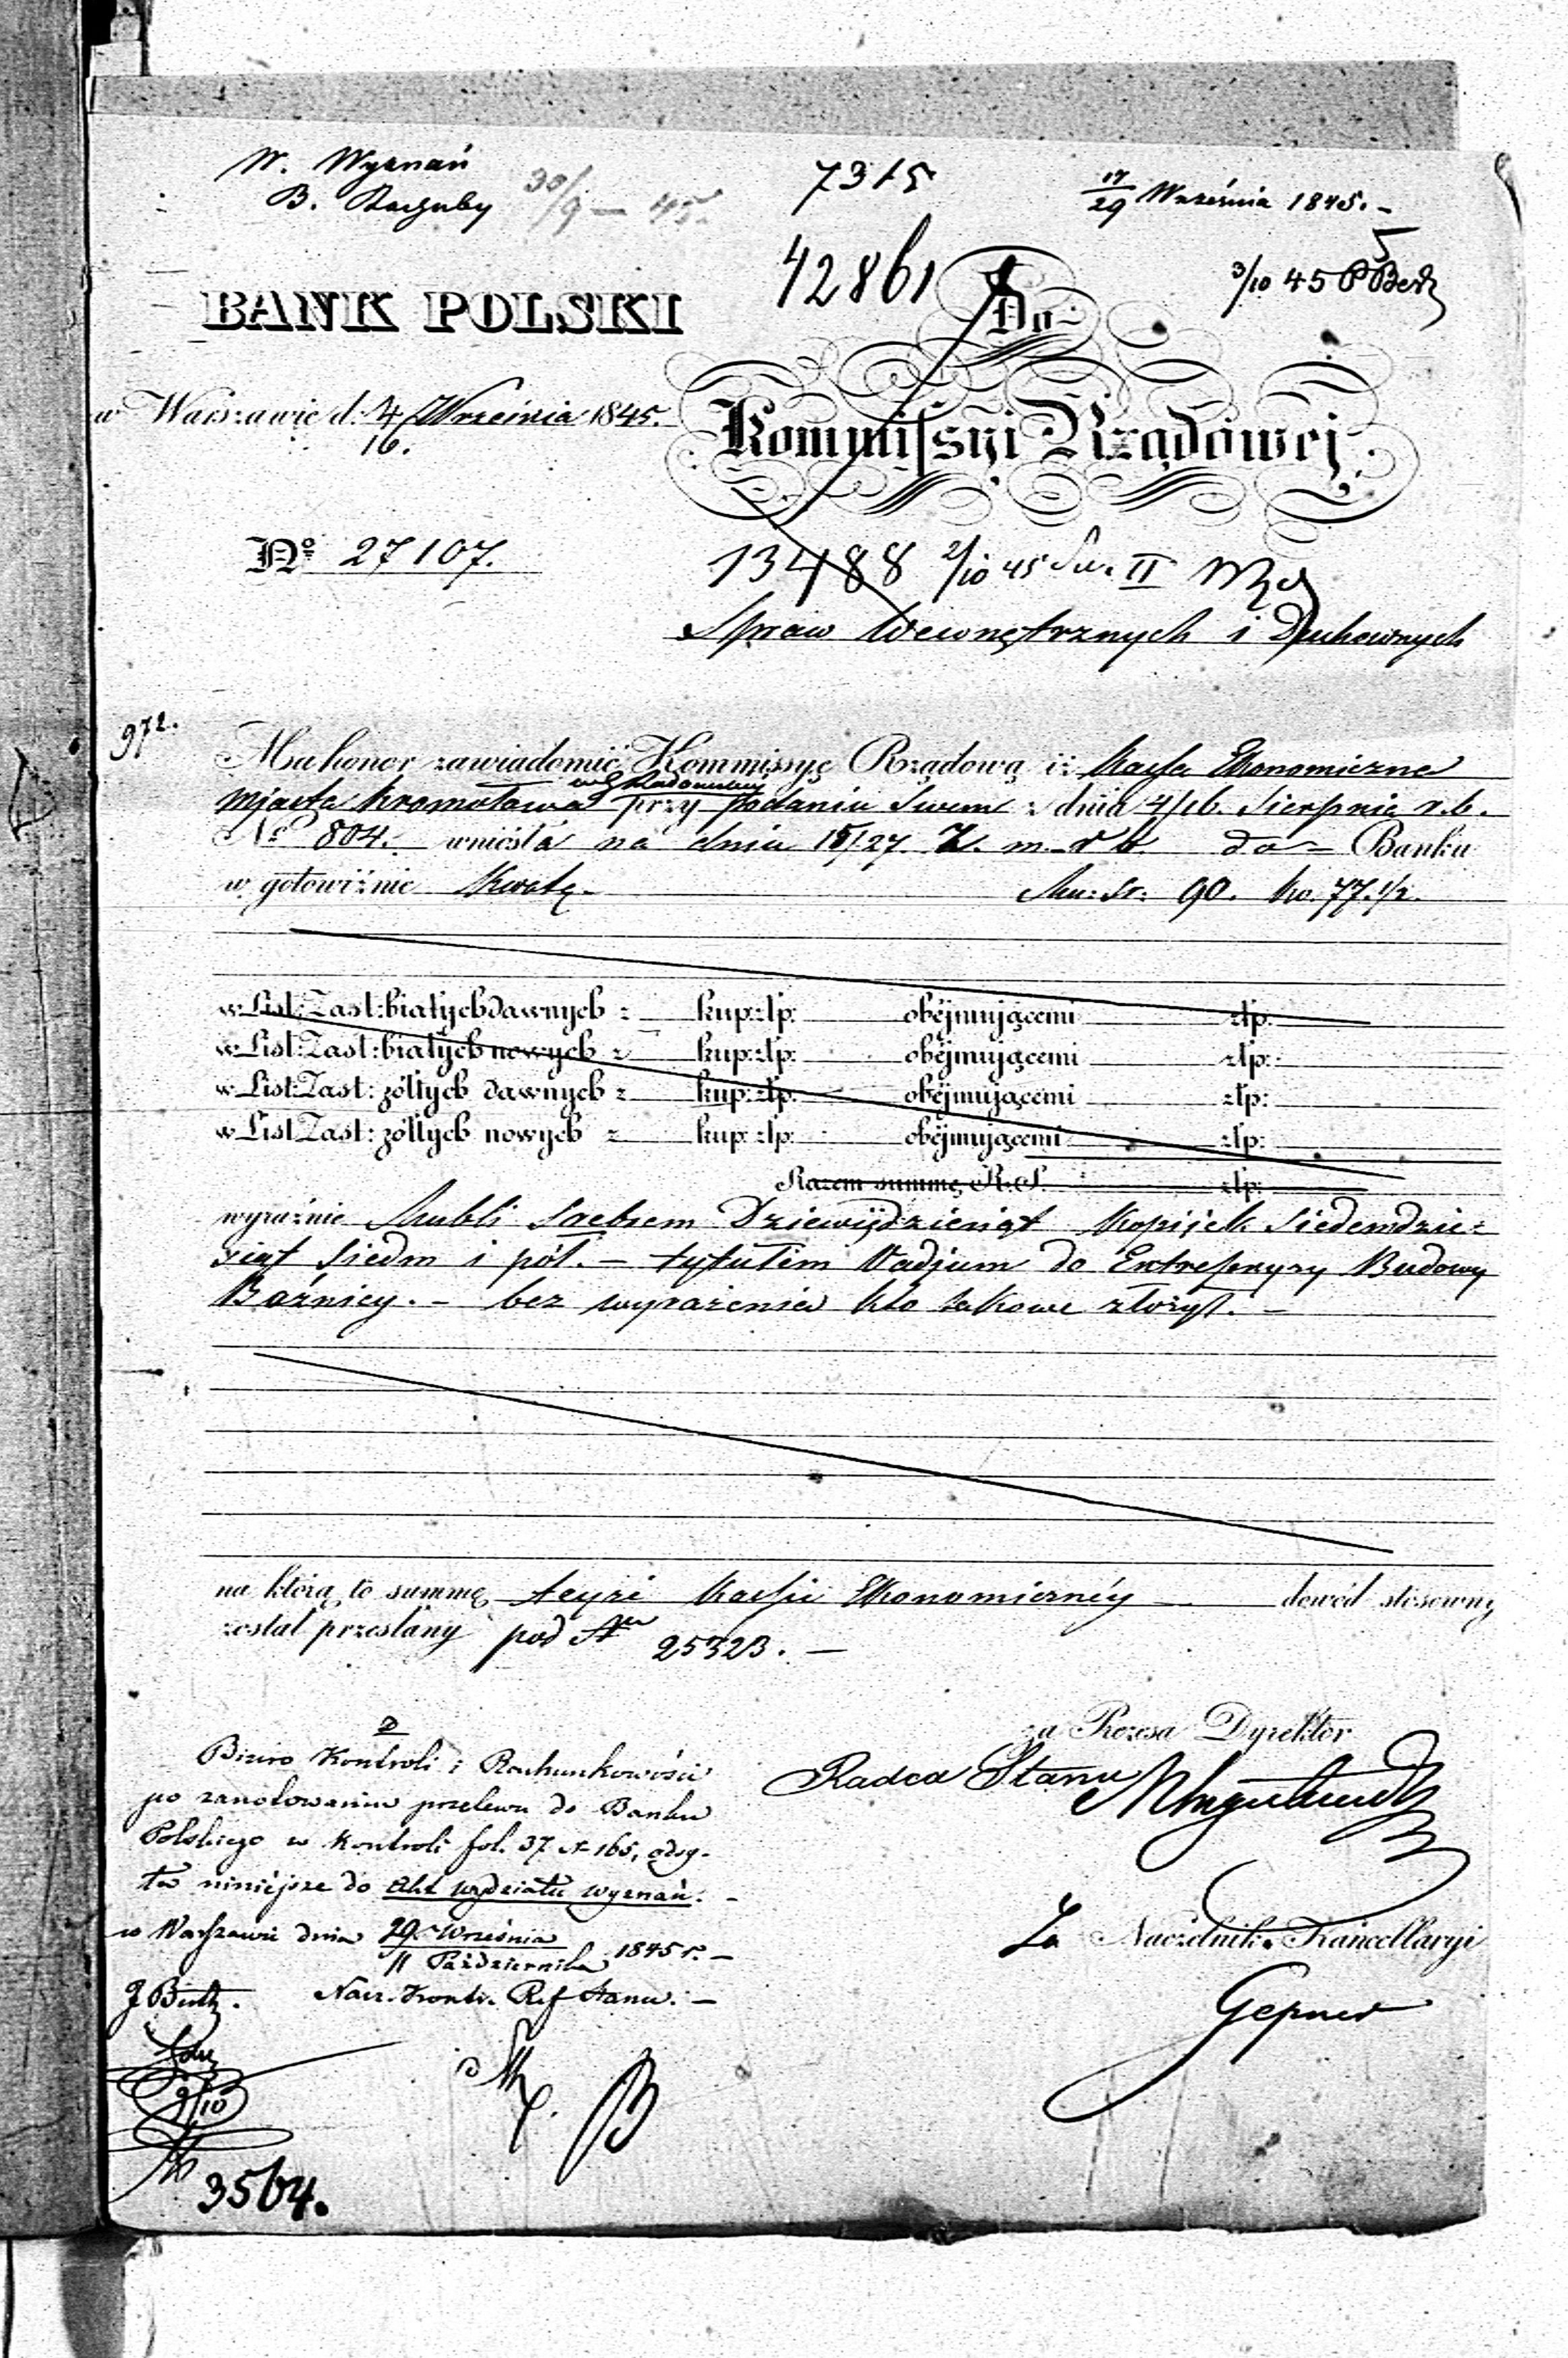 W. Wyznań
B. Rachuby 30/9 – 45.
7315
17/29 Września 1845. –
42861
3/10 45
BANK POLSKI
Do
Kommissyi Rządowej
w Warszawie d. 4/16. Września 1845.
No 27107.
13488 2/10 45 II
Spraw Wewnętrznych i Duchownych
972.
Ma honor zawiadomić Kommissyę Rządową iż Kassa Ekonomiczna
w G Radomskiej
Miasta Kromołowa przy podaniu swem z dnia 4/16. Sierpnia r. b.
No 804. wniosła na dniu 15/27. Z. m. r b. do – Banku
w gotowiźnie Kwotę – Ru: Sr: 90. ko. 77.1/2.
w List: Zast: białych dawnych z kup: złp: obejmującemi złp:
w List: Zast: białych nowych z kup: złp: obejmującemi złp:
w List: Zast: żółtych dawnych z kup: złp: obejmującemi złp:
w List: Zast: żółtych nowych z kup: złp: obejmującemi złp:
Razem summę R. S. złp:
wyraźnie Rubli Srebrem Dziewięćdziesiąt Kopijek Siedemdzie-
siąt Siedm i pół. – tytułem Vadjum do Entrepryzy Budowy
Bożnicy. – bez wyrażenia kto takowe złożył. –
na którą to summę teyże Kassie Ekonomicznéy – dowód stosowny
został przesłany pod Nem 25323. –
za Prezesa Dyrektor
Radca Stanu
Biuro Kontroli i Rachunkowości
po zanotowaniu przelewu do Banku
Polskiego w Kontroli fol. 37 N 165, odsy-
ła niniéjsze do Akt wydziału wyznań. –
w Warszawie dnia 29. Września / 11 Października 1845 r. –
Nacz. Kontr. Ref Stanu. –
Za Naczelnik Kancellaryi
Gepner
9/10
No 3564.